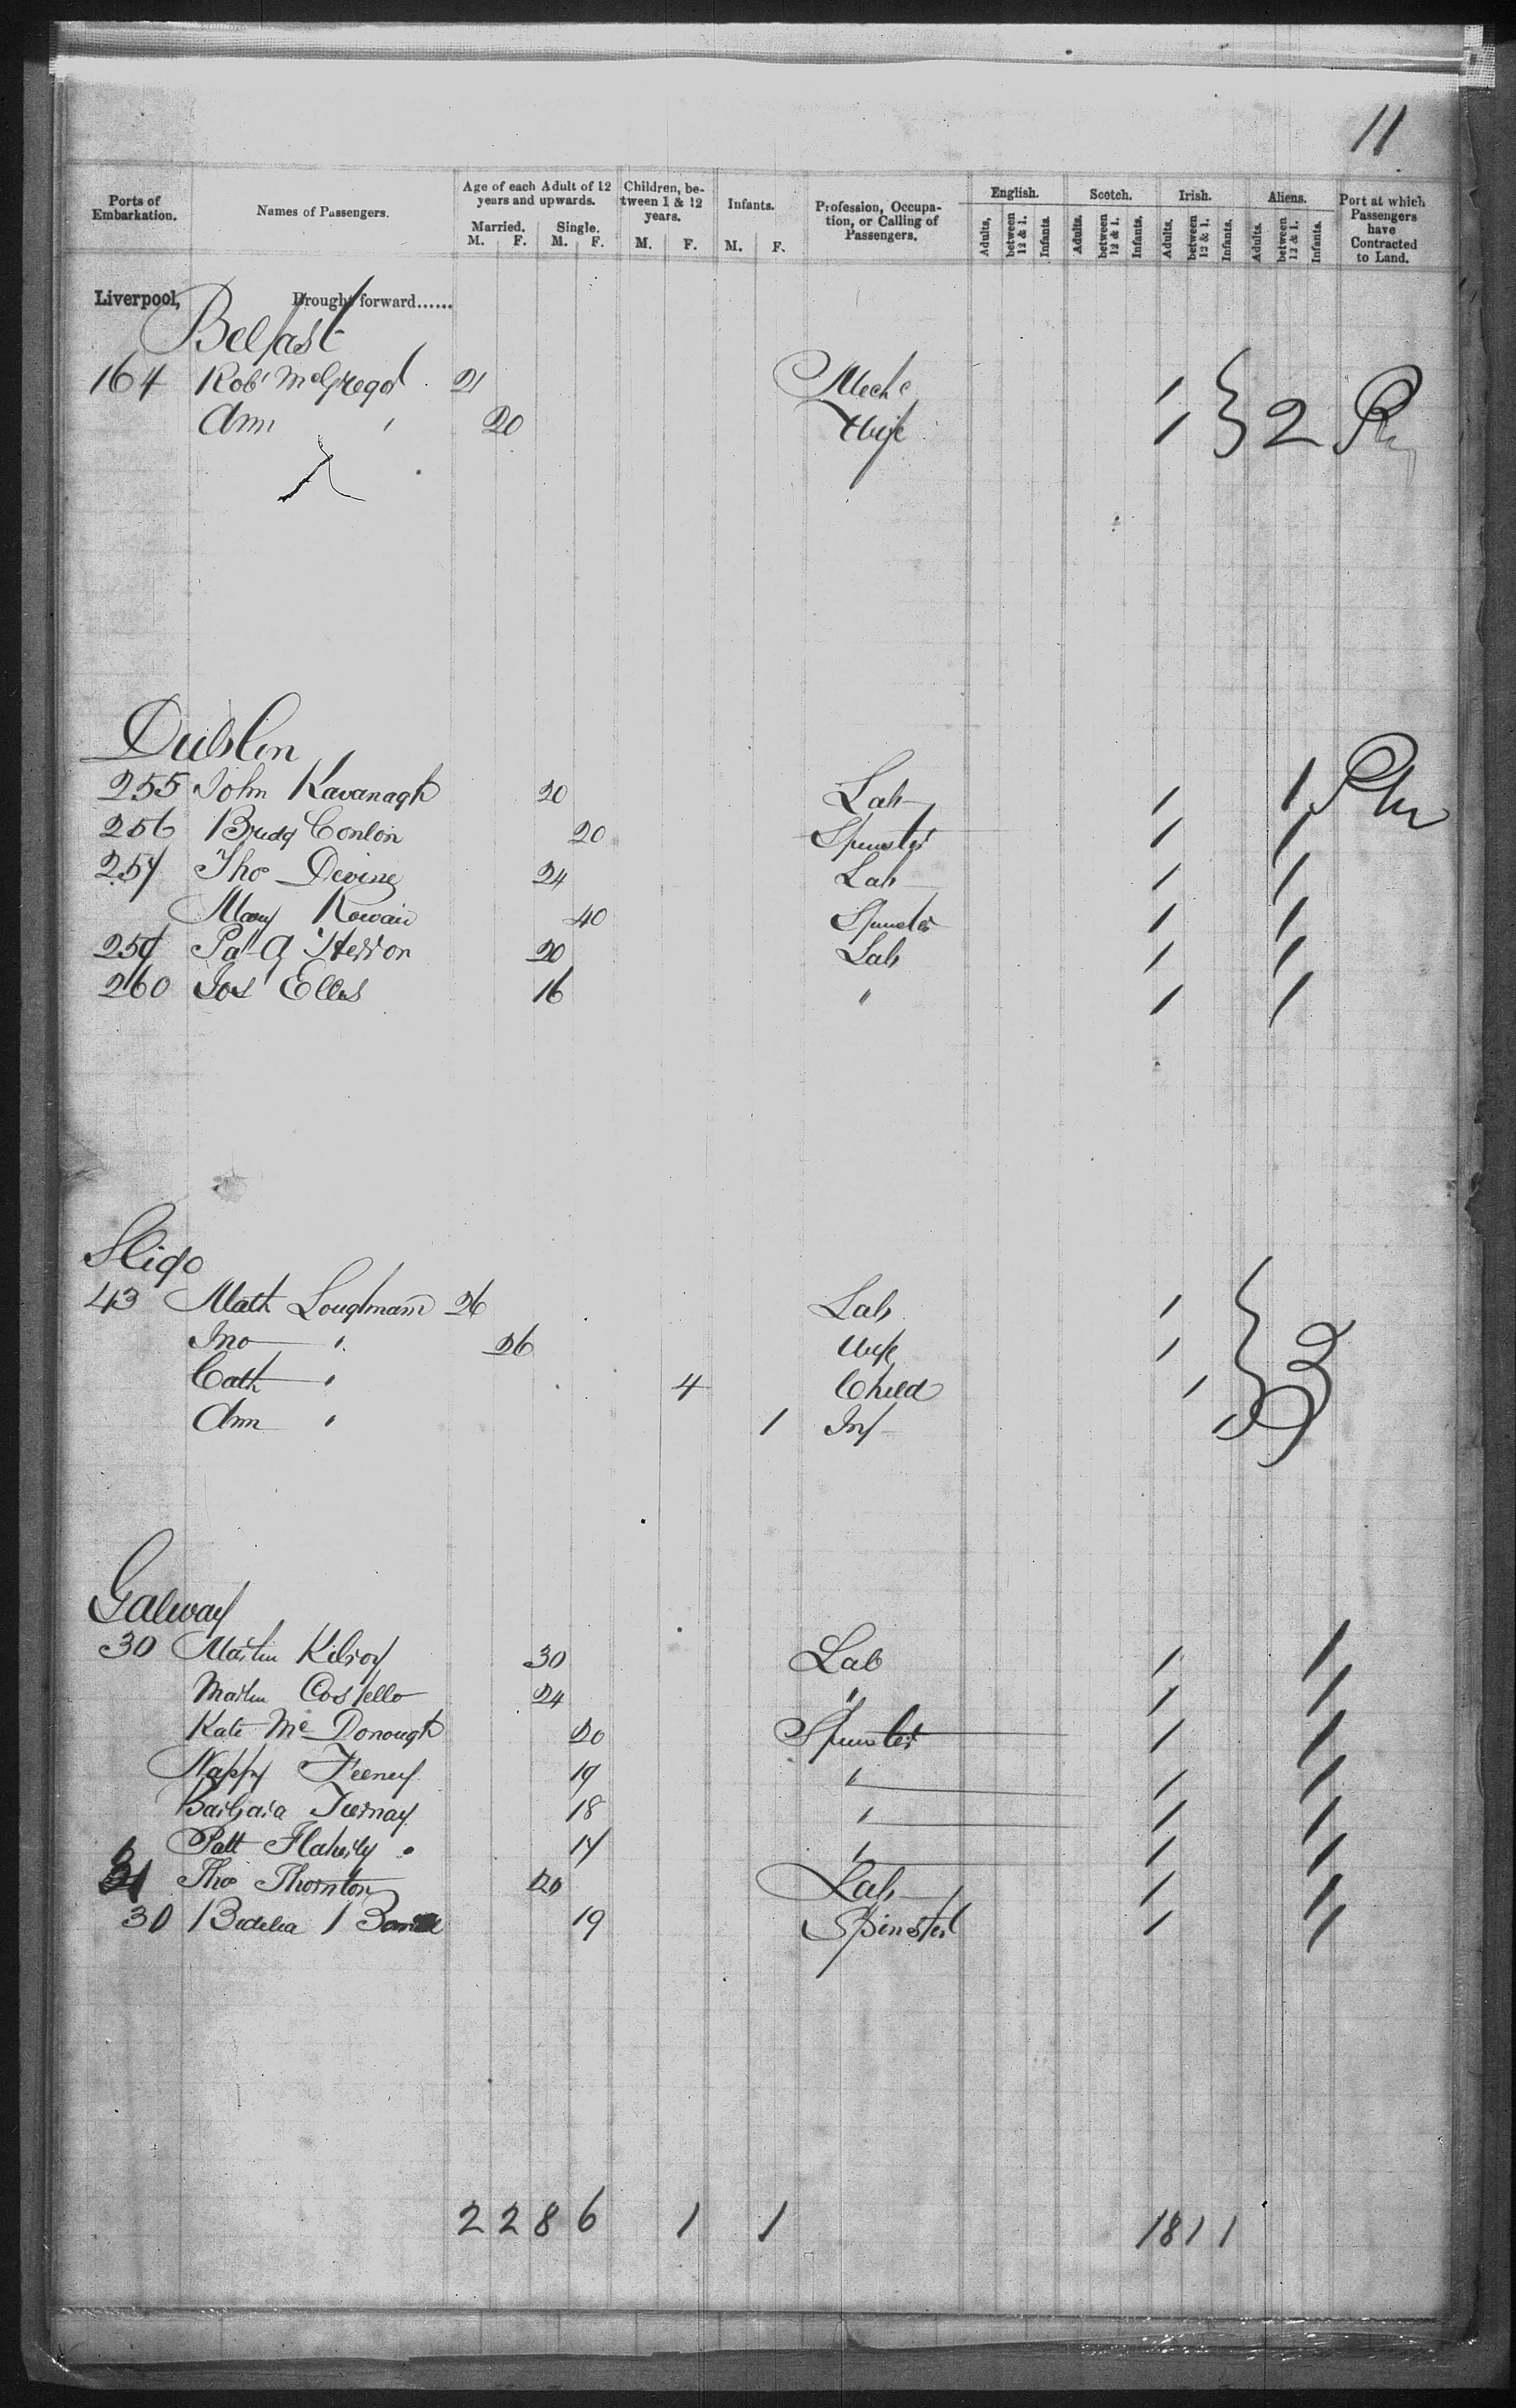 11
Ports of Embarkation. Names of Passengers. Age of each Adult of 12 years and upwards. Married. M. F. Single. M. F. Children, between 1 & 12 years. M. F. Infants. M. F. Profession, Occupation, or Calling of Passengers. English. Adults, between 12 & 1. Infants. Scotch. Adults. between 12 & 1. Infants. Irish. Adults. between 12 & 1. Infants. Aliens. Adults. between 12 & 1. Infants. Port at which Passengers have Contracted to Land.
Liverpool, Brought forward......
Belfast
164 Robt McGregor 21 Mechc 1 } 2
Ann " 20 Wife 1
Dublin
255 John Kavanagh 20 Lab 1 1
256 Bridg Conlon 20 Spinster 1 1
257 Thos Devine 24 Lab 1 1
Mary Rowan 40 Spinster 1 1
259 Pat Herron 20 Lab 1 1
260 Jos Ellis 16 " 1 1
Sligo
43 Math Loughnam 26 Lab 1 } 3
Jno " 26 Wife 1
Cath " 4 Child 1
Ann " 1 Inf 1
Galway
30 Martin Kilroy 30 Lab 1 1
Martin Costello 24 " 1 1
Kate McDonough 20 Spinster 1 1
Nappy Feeney 19 " 1 1
Barbara Tiernay 18 " 1 1
Patt Flaherty 17 " 1 1
31 Thos Thornton 20 Lab 1 1
30 Bedelia 19 Spinster 1 1
2 2 8 6 1 1 18 1 1